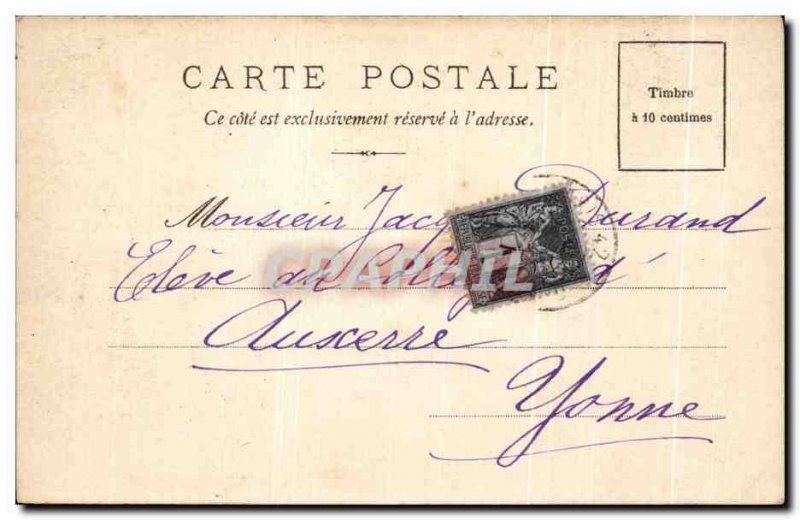 CARTE POSTALE
Ce côté est exclusivement réservé à l'adresse.
Timbre
à 10 centimes
Monsieur Jacq Durand
Elève au Coll d'
Auxerre
Yonne
CRAPHIL